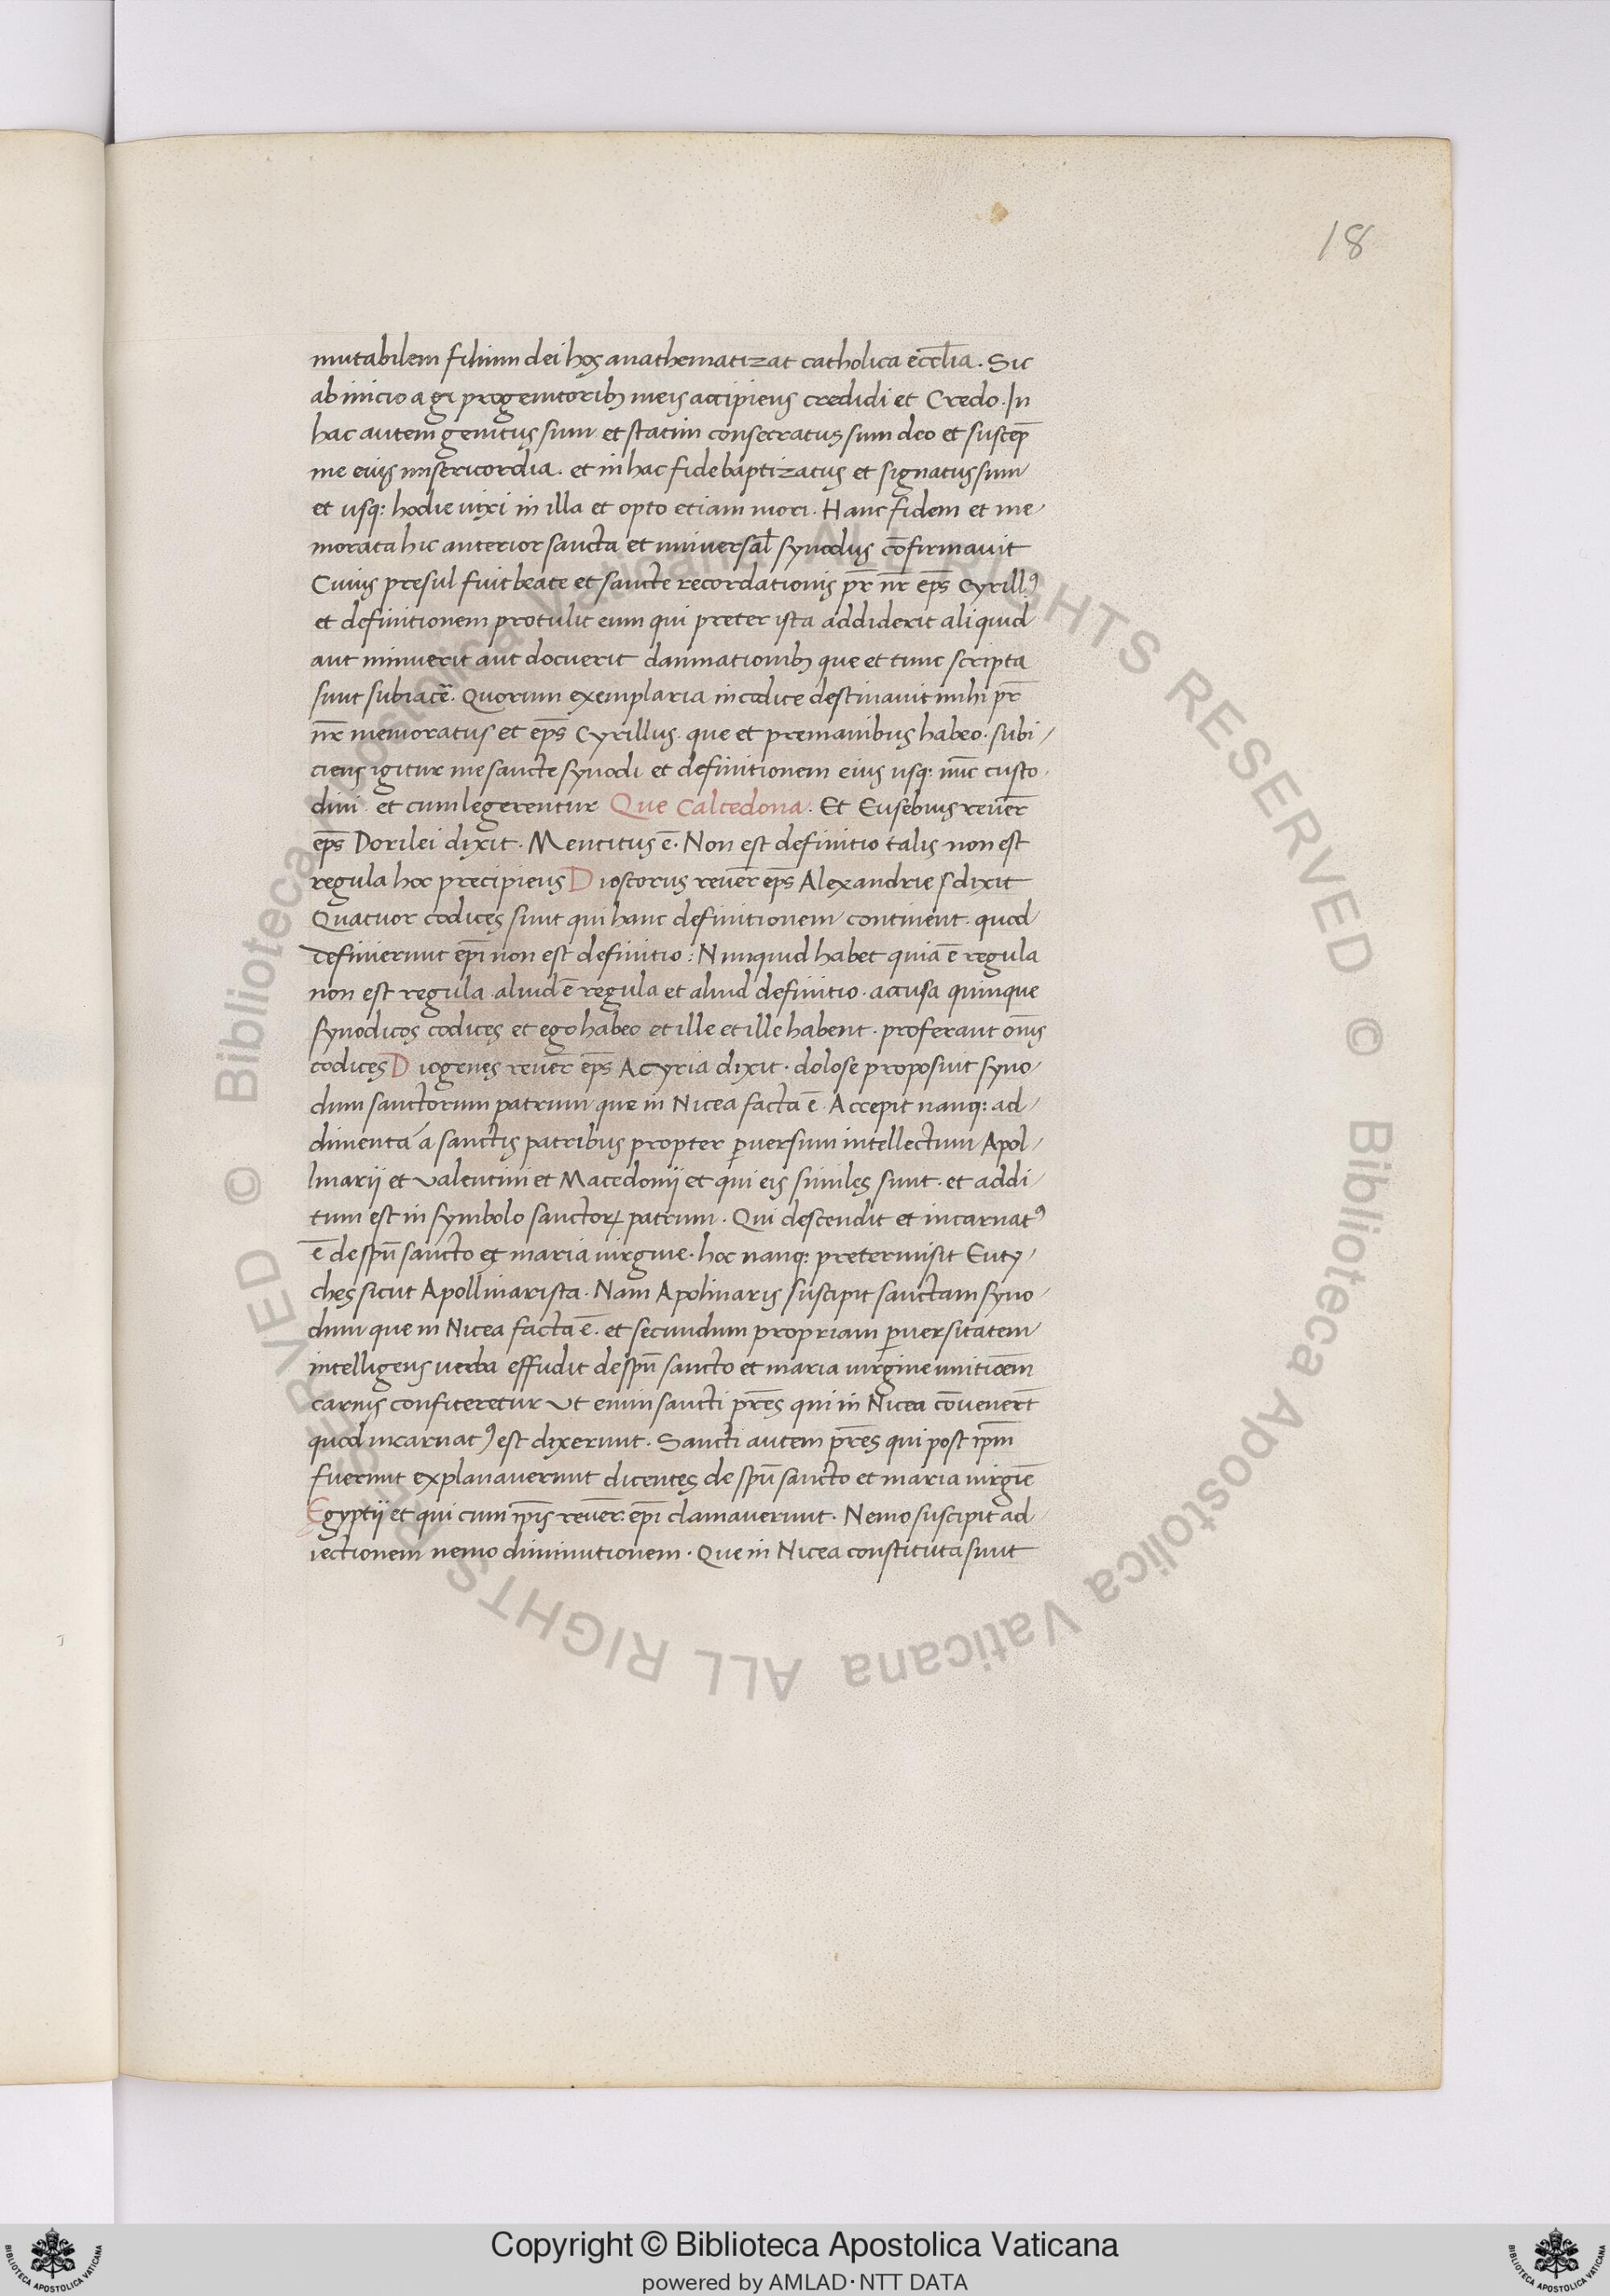 18
mutabilem filium dei hos anathematizat catholica eccl̄ia. Sic
ab inicio a gi progenitorib; meis accipiens credidi et Credo. In
hac autem genitus sum et statim consecratus sum deo et suscep̄
me eius misericordia. et in hac fide baptizatus et signatus sum
et usq: hodie vixi in illa et opto etiam mori. Hanc fidem et me
morata hic anterior sancta et universal̄ synodus cōfirmavit
Cuius presul fuit beate et sancte recordationis pr̄ nr̄ ep̄s Cyrillꝰ
et definitionem protulit eum qui preter ista addiderit aliquid
aut minuerit aut docuerit damnationib; que et tunc scripta
sunt subiacē. Quorum exemplaria in codice destinavit mihi pr̄
nr̄ memoratus et ep̄s Cyrillus. que et premanibus habeo. subi/
ciens igitur me sancte synodi et definitionem eius usq: nūc custo
divi et cum legerentur Que Calcedona. Et Eusebius reuer̄
ep̄s Dorilei dixit. Mentitus ē. Non est definitio talis non est
regula hoc precipiens Dioscorus reuer̄ ep̄s Alexandrie s dixit
Quatuor codices sunt qui hanc definitionem continent. quod
definierunt ep̄i non est definitio: Nunquid habet quia ē regula
non est regula. aliud ē regula et aliud definitio. accusa quinque
synodicos codices et ego habeo et ille et ille habent. proferant om̄s
codices Diogenes reuer̄ ep̄s Acyria dixit. dolose proposuit syno
dum sanctorum patrum que in Nicea facta ē. Accepit nanq: ad/
dimenta a sanctis patribus propter p̄versum intellectum Apol/
linarij et Valentini et Macedonij et qui eis similes sunt. et addi/
tum est in symbolo sanctoꝝ patrum. Qui descendit et incarnatꝰ
ē de spū sancto et maria virgine. hoc nanq: pretermisit Euty/
ches sicut Apollinarista. Nam Apolinaris suscipit sanctam syno/
dum que in Nicea facta ē. et secundum propriam p̄versitatem
intelligens verba effudit de spū sancto et maria virgine
carnis confiteretur Ut enim sancti pr̄es qui in Nicea cōvener̄t
quod incarnatꝰ est dixerunt. Sancti autem pr̄es qui post ip̄m
fuerunt explanaverunt dicentes de spū sancto et maria virgīe
Egyptij et qui cum ip̄is reuer̄. ep̄i clamaverunt. Nemo suscipit ad
iectionem nemo diminutionem. Que in Nicea constituta sunt
© Biblioteca Apostolica Vaticana ALL RIGHTS RESERVED
© Biblioteca Apostolica Vaticana ALL RIGHTS RESERVED
Copyright © Biblioteca Apostolica Vaticana
powered by AMLAD·NTT DATA
BIBLIOTECA APOSTOLICA VATICANA
BIBLIOTECA APOSTOLICA VATICANA